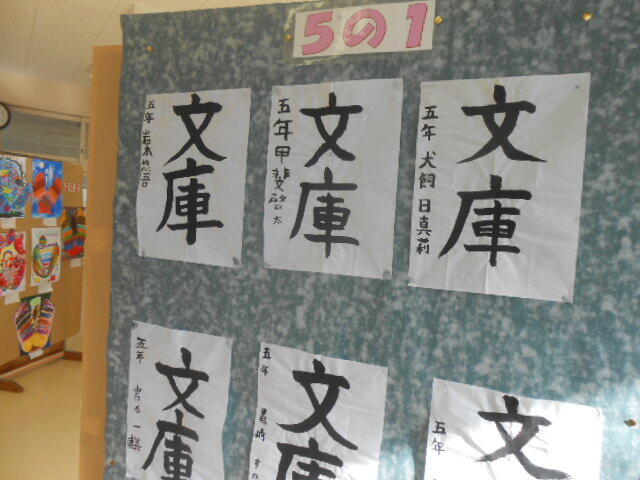 5の1
文庫
五年 岩本
文庫
五年 甲斐啓太
文庫
五年 犬飼日真莉
文庫
五年
文庫
五年 亀崎
文
五年